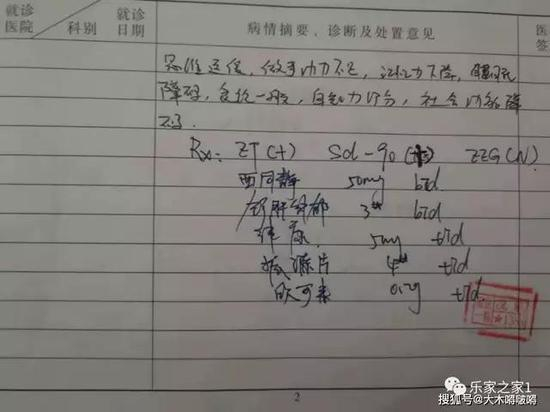 就诊医院 科别 就诊日期 病情摘要、诊断及处置意见 医签
思维迟缓，做事动力不足，记忆力下降，睡眠
障碍，食欲一般，自知力部分，社会功能降
Rx: ZT (+) Scl-90 (+) ZZG (N)
西同静 50mg bid
舒肝解郁 3# bid
5mg tid
片 4# tid
欧可来 0.2g tid
2
乐家之家1
搜狐号@大木嘚啵嘚